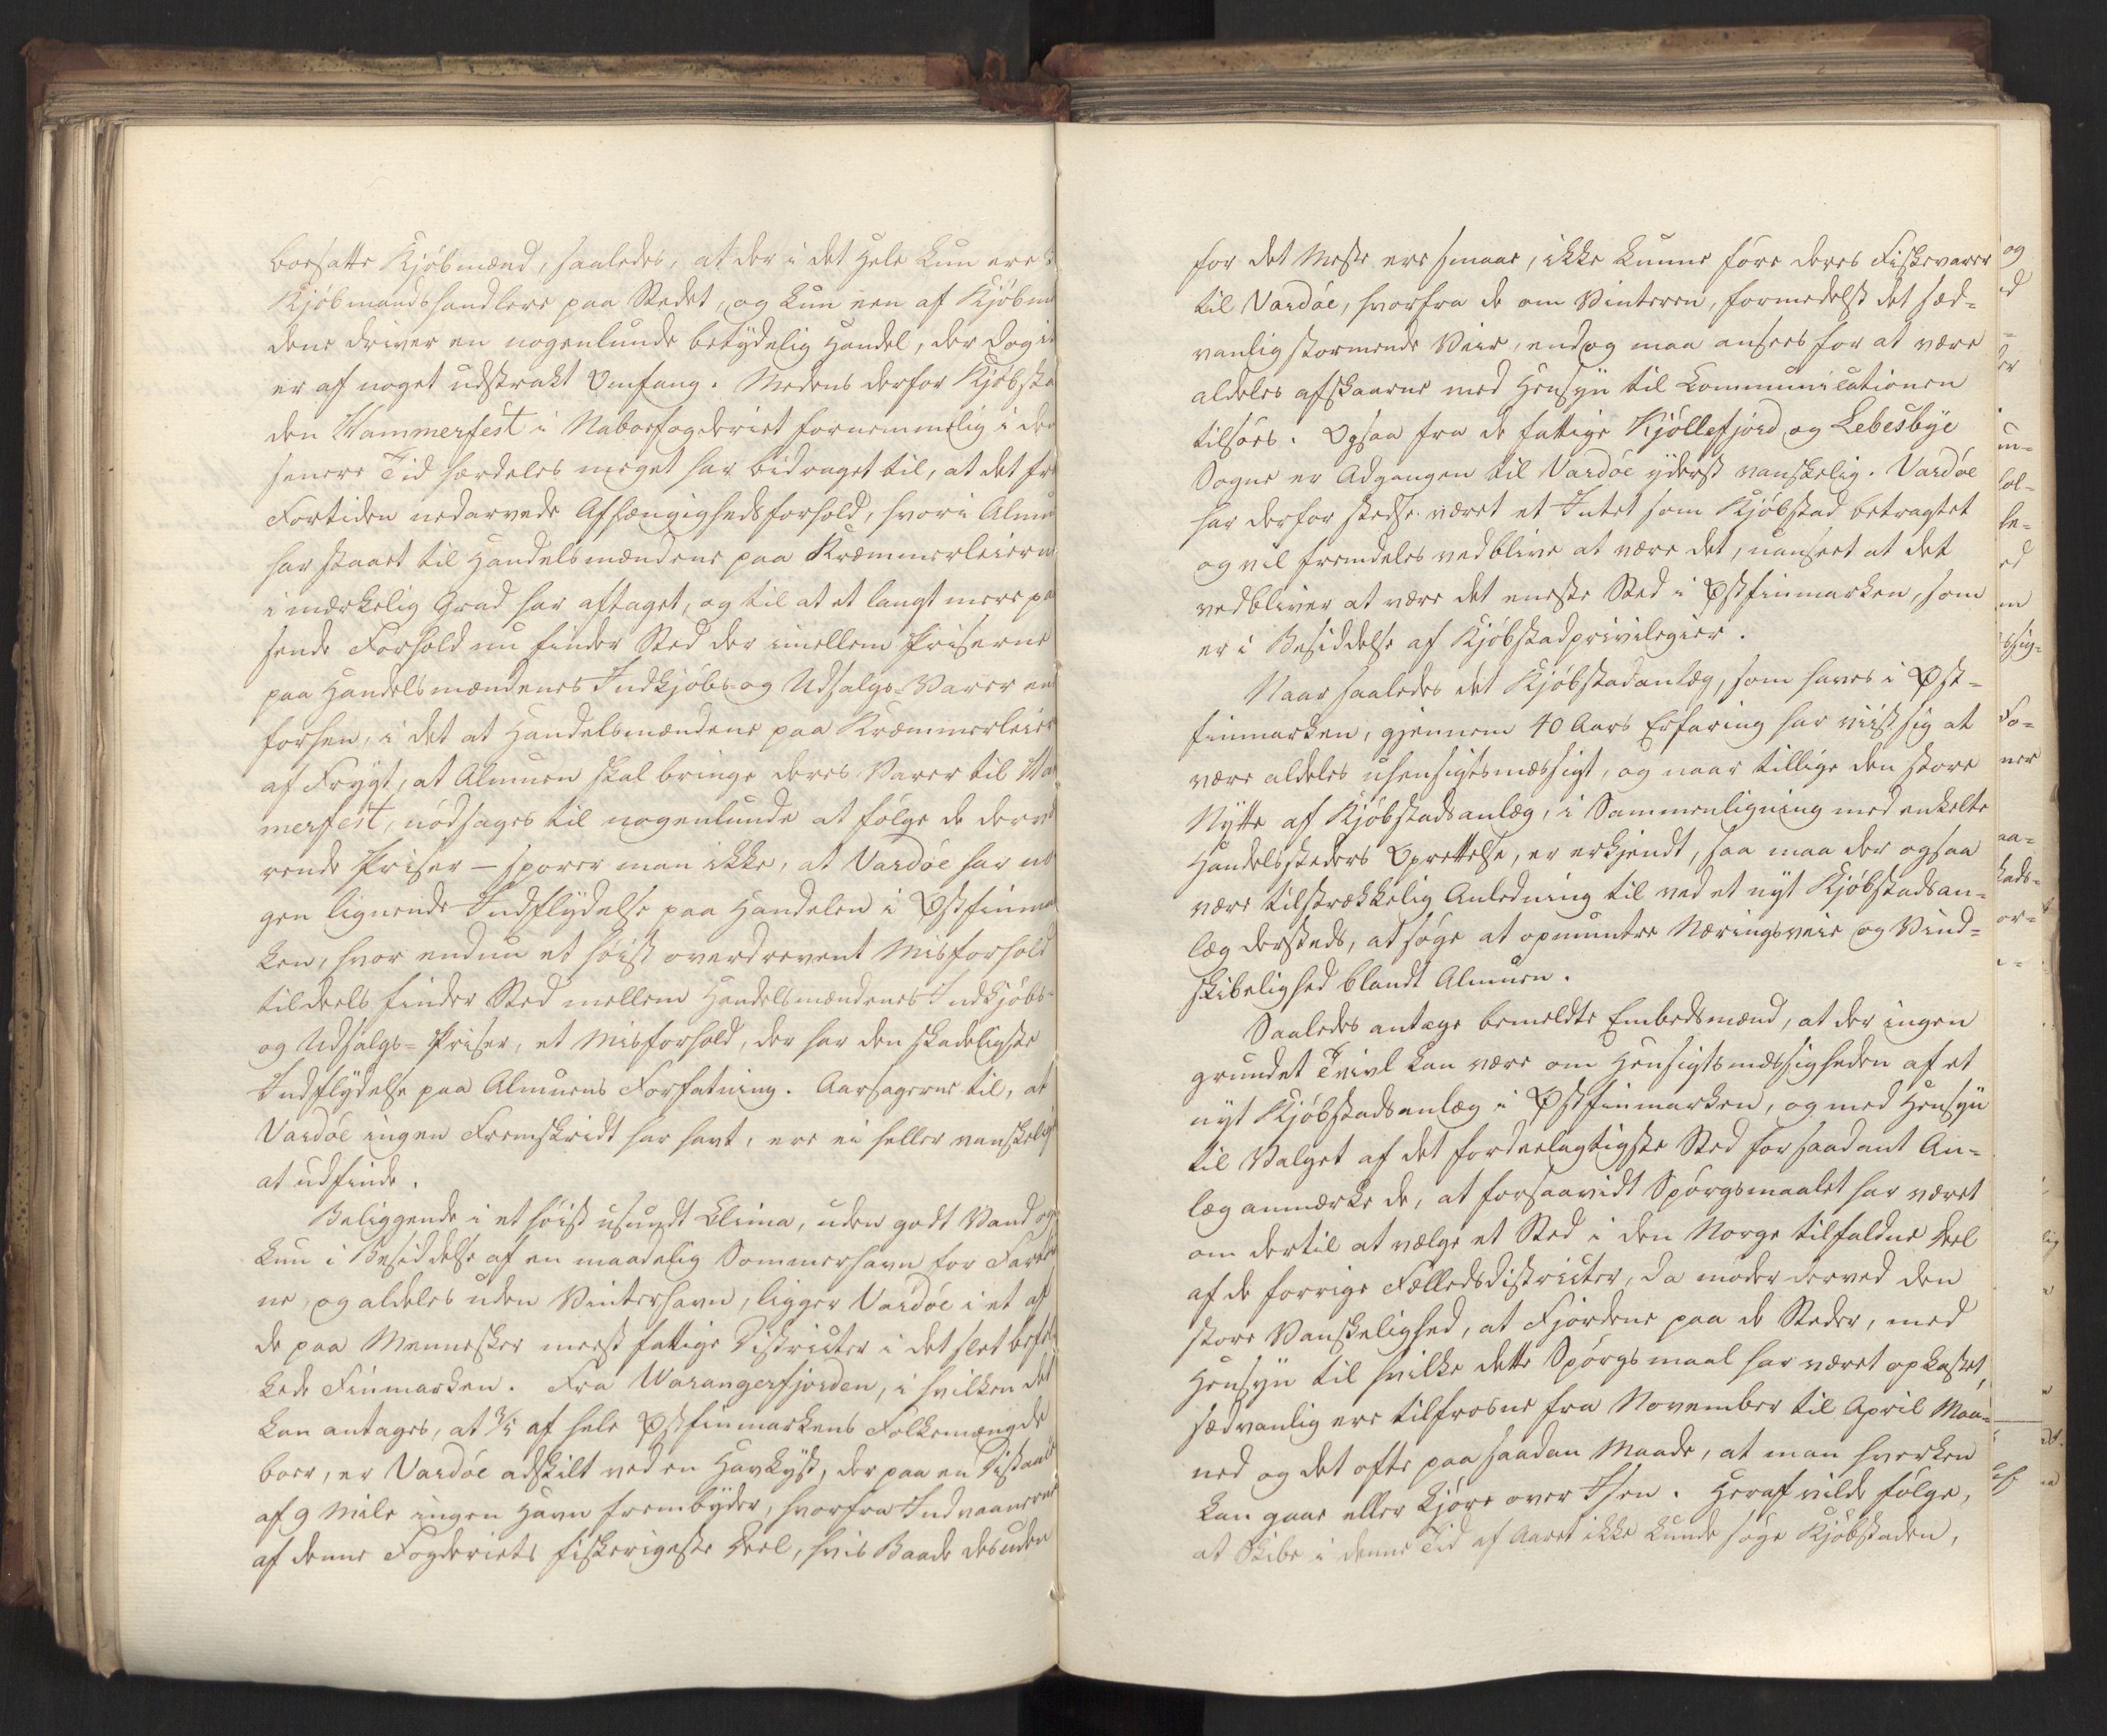 boesatte Kjöbmænd, saaledes, at der i det Hele kun ere
Kjöbmandshandlere paa Stedet, og kun een af Kjöbm
dene driver en nogenlunde betydelig Handel, der dog i
er af noget udstrakt Omfang. Medens derfor Kjöbsta
den Hammerfest i Naboefogderiet fornemmelig i den
senere Tid særdeles meget har bidraget til, at det fra
Fortiden nedarvede Afhængighedsforhold, hvori Almu
har staaet til Handelsmændene paa Kræmmerleiern
i mærkelig Grad har aftaget, og til at et langt mere pa
sende Forhold nu finder Sted der imellem Priserne
paa Handelsmændenes Indkjöbs- og Udsalgs-Varer end
forhen, i det at Handelsmændene paa Kræmmerleier
af Frygt, at Almuen skal bringe deres Varer til Ha
merfest, nödsages til nogenlunde at fölge de derv
rende Priser – sporer man ikke, at Vardöe har no
gen lignende Indflydelse paa Handelen i Østfinma
ken, hvor endnu et höist overdrevent Misforhold
tildeels finder Sted mellem Handelsmændenes Indkjöbs-
og Udsalgs-Priser, et Misforhold, der har den skadeligste
Indflydelse paa Almuens Forfatning. Aarsagerne til, at
Vardöe ingen Fremskridt har havt, ere ei heller vanskelig
at udfinde.
Beliggende i et höist usundt Clima, uden godt Vand og
kun i Besiddelse af en maadelig Sommerhavn for Fartöi
ne, og aldeles uden Vinterhavn, ligger Vardöe i et af
de paa Mennesker meest fattige Districter i det slet befol
kede Finmarken. Fra Warangerfjorden, i hvilken det
kan antages, at 3/5 af hele Østfinmarkens Folkemængde
boer, er Vardöe adskilt ved en Havkyst, der paa en Distance
af 9 Mile ingen Havn frembyder, hvorfra Indvaanerne
af denne Fogderiets fiskerigeste Deel, hvis Baade desuden
for det Meste ere smaae, ikke kunne före deres Fiskevarer
til Vardöe, hvorfra de om Vinteren, formedelst det sæd-
vanlig stormende Veir, endog maa ansees for at være
aldeles afskaarne med Hensyn til Communicationen
tilsöes. Ogsaa fra de fattige Kjöllefjord og Lebesbye
Sogne er Adgangen til Vardöe yderst vanskelig. Vardöe
har derfor stedse været et Intet som Kjöbstad betragtet
og vil fremdeles vedblive at være det, uanseet at det
vedbliver at være det eneste Sted i Østfinmarken, som
er i Besiddelse af Kjöbstadprivilegier.
Naar saaledes det Kjöbstadanlæg, som haves i Øst-
finmarken, gjennem 40 Aars Erfaring har viist sig at
være aldeles uhensigtsmæssigt, og naar tillige den store
Nytte af Kjöbstadsanlæg, i Sammenligning med enkelte
Handelssteders Oprettelse, er erkjendt, saa maa der ogsaa
være tilstrækkelig Anledning til ved et nyt Kjöbstadsan-
læg dersteds, at söge at opmuntre Næringsveie og Vind-
skibelighed blandt Almuen.
Saaledes antage bemeldte Embedsmænd, at der ingen
grundet Tvivl kan være om Hensigtsmæssigheden af et
nyt Kjöbstadsanlæg i Østfinmarken, og med Hensyn
til Valget af det fordeelagtigste Sted for saadant An-
læg anmærke de, at forsaavidt Spörgsmaalet har været
om dertil at vælge et Sted i den Norge tilfaldne Deel
af de forrige Fælledsdistricter, da möder derved den
store Vanskelighed, at Fjordene paa de Steder, med
Hensyn til hvilke dette Spörgsmaal har været opkastet,
sædvanlig ere tilfrosne fra November til April Maa-
ned og det ofte paa saadan Maade, at man hverken
kan gaae eller kjöre over Isen. Heraf vilde fölge,
at Skibe i denne Tid af Aaret ikke kunde söge Kjöbstaden,